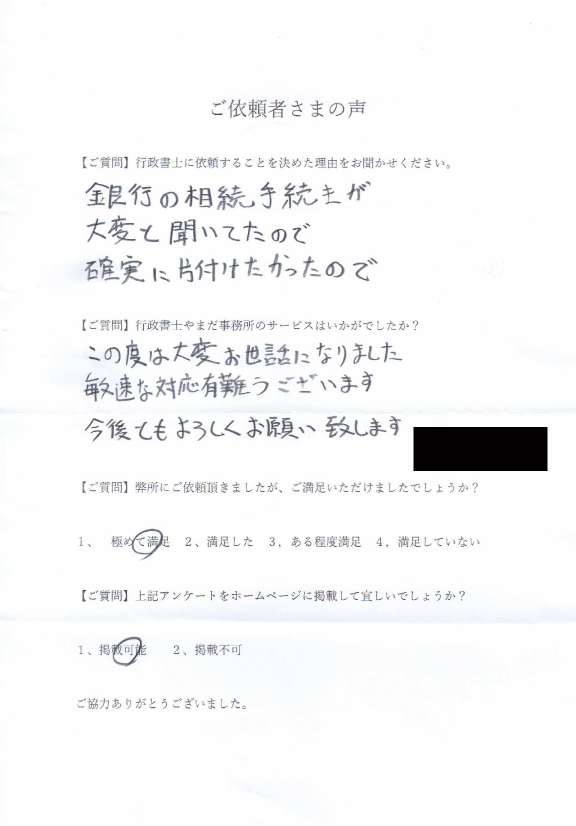 ご依頼者さまの声
【ご質問】行政書士に依頼することを決めた理由をお聞かせください。
銀行の相続手続きが
大変と聞いてたので
確実に片付けたかったので
【ご質問】行政書士やまだ事務所のサービスはいかがでしたか？
この度は大変お世話になりました
敏速な対応有難うございます
今後ともよろしくお願い致します
【ご質問】弊所にご依頼頂きましたが、ご満足いただけましたでしょうか？
１、　極めて満足　２、満足した　３，ある程度満足　４，満足していない
【ご質問】上記アンケートをホームページに掲載して宜しいでしょうか？
１、掲載可能　　２、掲載不可
ご協力ありがとうございました。